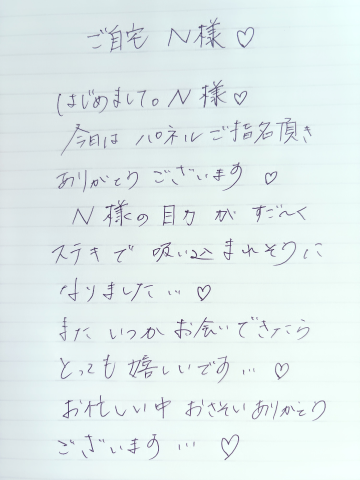 ご自宅 N様♡
はじめまして。N様♡
今日は パネル ご指名頂き
ありがとう ございます ♡
N様の目力 が すご〜く
ステキで 吸い込まれそうに
なりました… ♡
また いつか お会いできたら
とっても 嬉しいです… ♡
お忙しい中 おさそい ありがとう
ございます … ♡